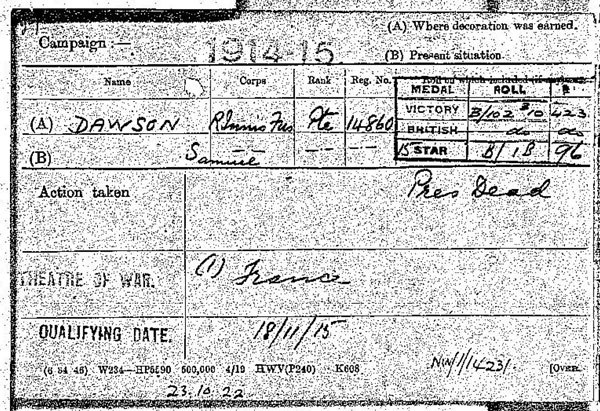 (A) Where decoration was earned.
Campaign :— 1914-15
(B) Present situation.
Name Corps Rank Reg. No. Roll on which included
MEDAL ROLL
(A) DAWSON R Innis Fus Pte 14860
VICTORY B/102 B10 423
BRITISH do do
(B) Samuel — — — — — —
15 STAR B/1B 96
Action taken Pres Dead
THEATRE OF WAR. (1) France
QUALIFYING DATE. 18/11/15
(6 34 46) W234—HP5590 500,000 4/19 HWV(P240) K608 [OVER.
23.10.22